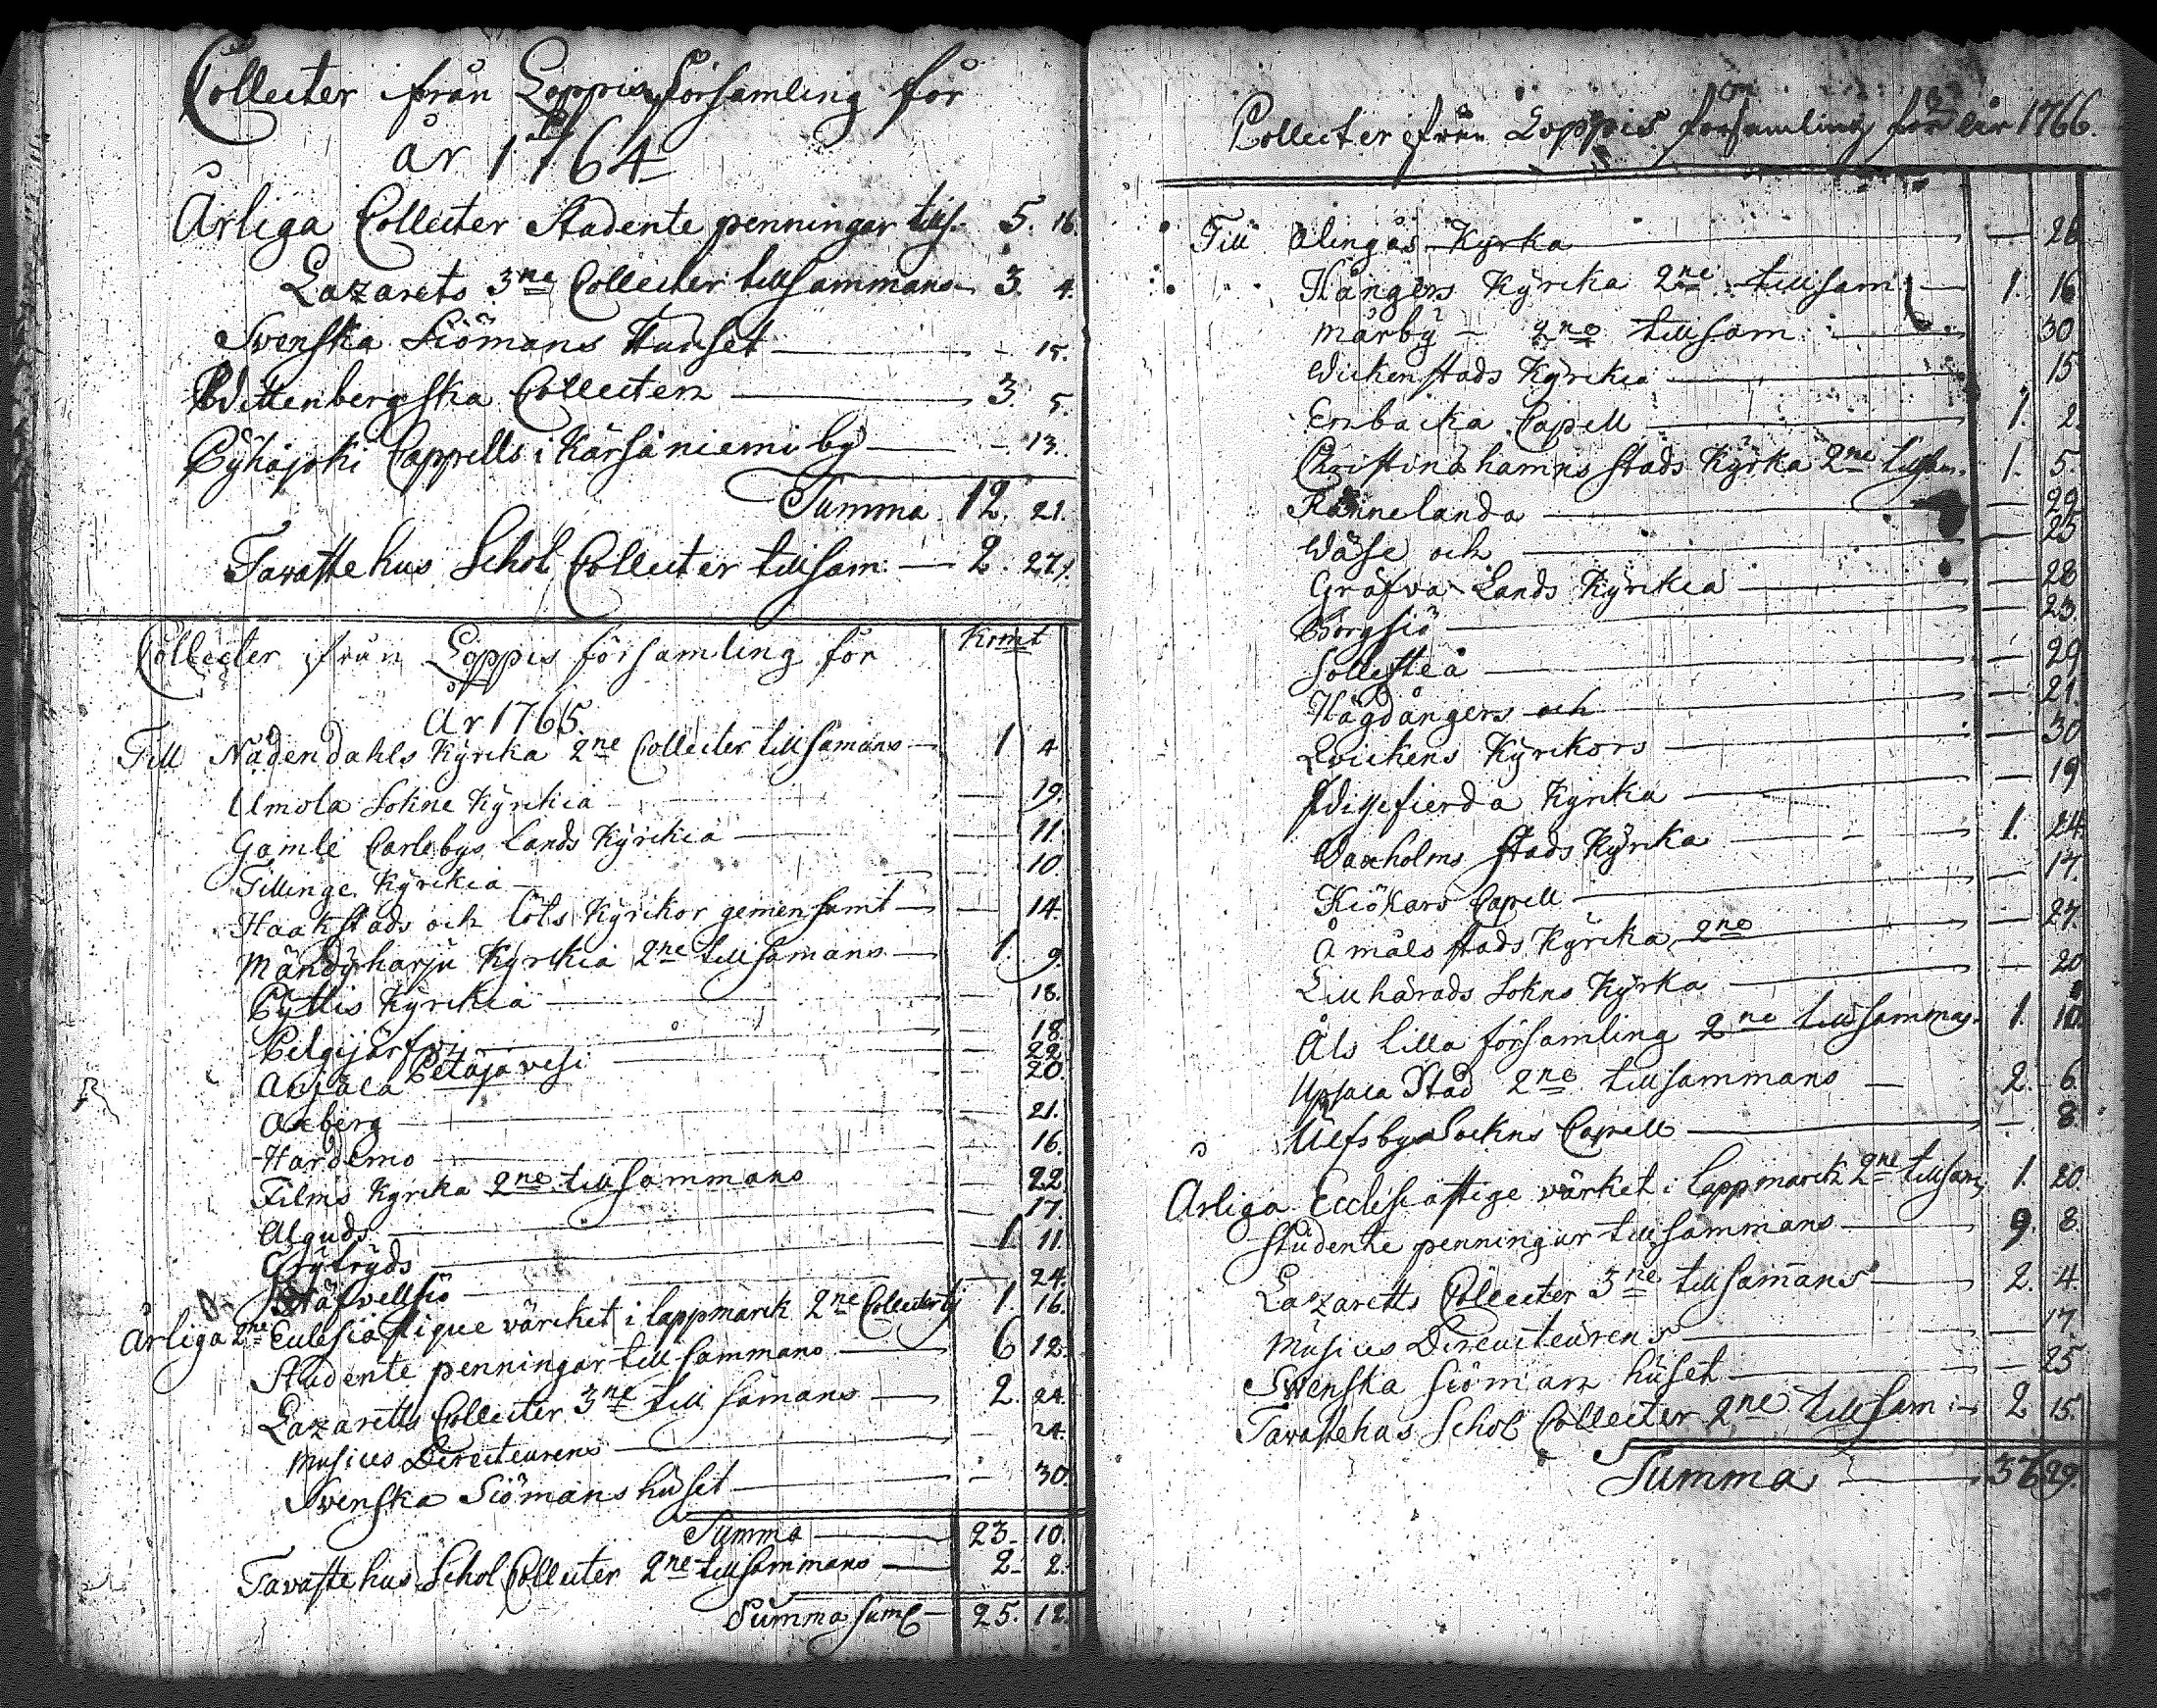 Collecter ifrån Loppis församling för
år 1764
Årliga Collecter Studente penningar tills. 5. 16.
Lazarets 3ne Collecter tillsammans 3. 4.
Svenska Siömans Huset — - 15.
Wittenbergska Collecten — 3. 5.
Pyhäjoki Cappells i Kärsäniemi by — - 13.
Summa 12. 21.
Tavastehus Schol Collecter tillsam: — 2. 27.
Collecter ifrån Loppis församling för Krmt
År 1765.
Till Nådendahls Kyrka 2ne Collecter tillsamans — 1 4
Umola Sokne Kyrckia — 19.
Gamle Carlebys Lands Kyrckia — 11.
Tillinge Kyrckia — 10
Haakstads och Löts Kyrckor gemensamt — 14.
Mändyharju Kyrckia 2ne tillsamans — 1. 9.
Pyttis Kyrckia — 18.
Pelgijärfvi — 18.
Anjala Petäjävesi — 22
20.
Axberg — 21.
Hardemo — 16.
Films Kyrka 2ne tillsammans 22.
Alguds — 17.
Grytryds — 1. 11.
Stäfvellsiö — 24.
Årliga 2ne Eclesiastique värcket i lappmarck 2ne Collecter 1. 16.
Studente penningar tillsammans — 6 12.
Lazaretts Collecter 3ne till samans — 2. 24.
Musices Directeurens — 24.
Svenska Siömans huset — 30.
Summa — 23. 10.
Tavastehus Schol Collecter 2ne tillsammans — 2. 2.
Summa sum — 25. 12.
Collecter ifrån Loppis församling för år 1766.
Till Alingås Kyrka — 26
Hångers Kyrcka 2ne tillsam — 1. 16
Märby — 2ne tillsam: — 30
Wickenstads Kyrckia — 15
Embacka Capell — 1. 2.
Christinæhamns stads Kyrka 2ne tillsam. 1. 5.
Rännelanda — 29
Wäse och — 25
Gräfva Lands Kyrckia — 28
Borgsiö — 23.
Sollefteå — 29
Högdångers och — 21.
Kyrckors — 30
Wissefierda Kyrka — 19
Waxholms stads Kyrka — 1. 24.
Kiökars Capell — 17.
Åmåls stads Kyrcka 2ne — 27.
Lillhärads Sokns Kyrka — 20
Åls lilla församling 2ne tillsammans. 1. 10.
Upsala Stad 2ne tillsammans — 2. 6.
Ulfsby Sockns Capell — 8.
Årliga Ecclesiastige värket i lappmarck 2ne tillsam, 1. 20.
Studente penningar tillsammans — 9. 8.
Lazaretts Collecter 3ne tillsamans — 2. 4.
Musices Directeurens — 17.
Svenska Siöman huset — 25
Tavastehus Schol Collecter 2ne tillsam: — 2 15.
Summa — 36 29.